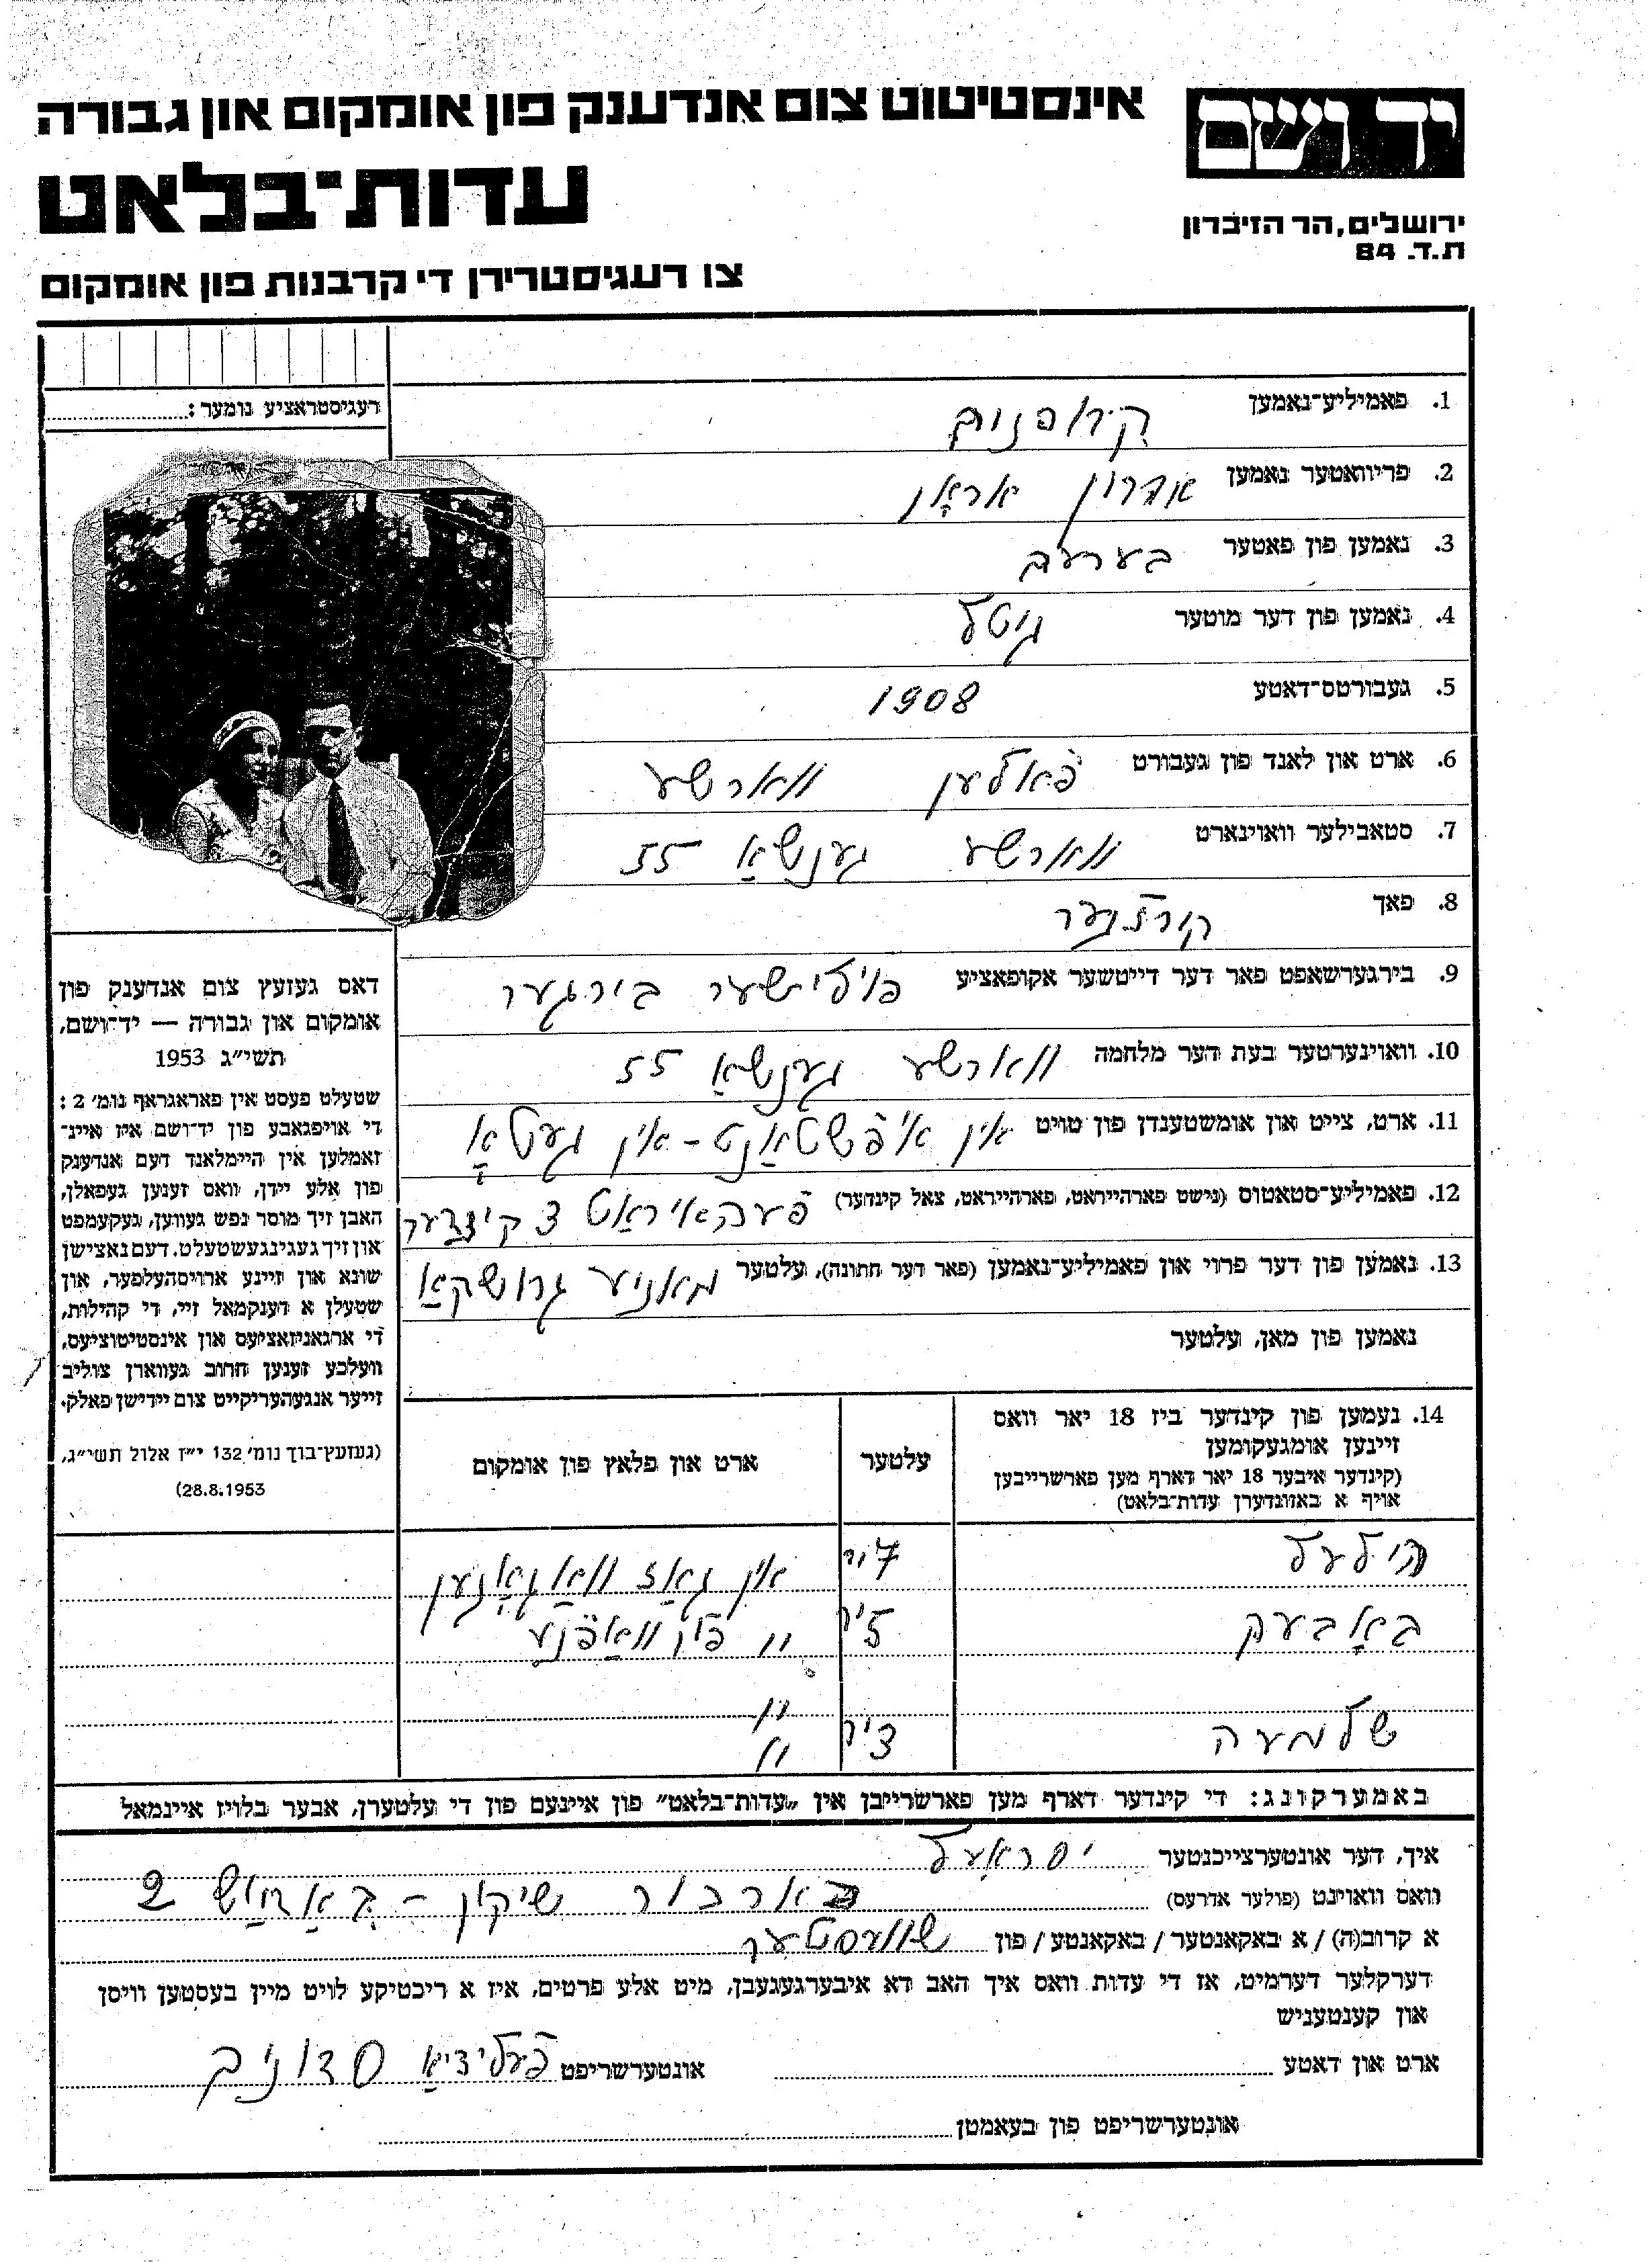 אינסטיטוט צום אנדענק פון אומקום און גבורה
יד ושם
עדות־בלאט
ירושלים, הר הזיכרון
ת.ד. 84
צו רעגיסטרירן די קרבנות פון אומקום
רעגיסטראציע נומער:
1. פאמיליע־נאמען
2. פריוואטער נאמען אהרון אראָן
3. נאמען פון פאטער בערעק
4. נאמען פון דער מוטער גיטל
5. געבורטס־דאטע 1908
6. ארט און לאנד פון געבורט פּאלען ווארשע
7. סטאבילער וואוינארט ווארשע גענשאַ 55
8. פאך קורזנער
9. בירגערשאפט פאר דער דייטשער אקופאציע פוילישער בירגער
10. וואוינערטער בעת דער מלחמה ווארשע גענשאַ 55
11. ארט, צייט און אומשטענדן פון טויט אין אופשטאַנט – אין געטאָ
12. פאמיליע־סטאטוס (נישט פארהייראט, פארהייראט, צאל קינדער) 3 קינדער
13. נאמען פון דער פרוי און פאמיליע־נאמען (פאר דער חתונה), עלטער מאניע גרושקאַ
נאמען פון מאן, עלטער
דאס געזעץ צום אנדענק פון
אומקום און גבורה — יד־ושם,
תשי״ג 1953
שטעלט פעסט אין פאראגראף נומ׳ 2:
די אויפגאבע פון יד־ושם איז איינ־
זאמלען אין היימלאנד דעם אנדענק
פון אלע יידן, וואס זענען געפאלן,
האבן זיך מוסר נפש געווען, געקעמפט
און זיך געגינגעשטעלט. דעם נאצישן
שונא און זיינע ארויסהעלפער, און
שטעלן א דענקמאל זיי, די קהילות,
די ארגאניזאציעס און אינסטיטוציעס,
וועלכע זענען חרוב געווארן צוליב
זייער אנגעהעריקייט צום יידישן פאלק.
(געזעץ־בוך נומ׳ 132 י״ז אלול תשי״ג,
28.8.1953)
14. נעמען פון קינדער ביז 18 יאר וואס
זיינען אומגעקומען
(קינדער איבער 18 יאר דארף מען פארשרייבן
אויף א באזונדערן עדות־בלאט)
עלטער
ארט און פלאץ פון אומקום
הילעל 7 יר אין גאַז וואַגאָנען
באָבעק 5 יר
שלמעה 3 יר
באמערקונג: די קינדער דארף מען פארשרייבן אין „עדות־בלאט” פון איינעם פון די עלטערן, אבער בלויז איינמאל
איך, דער אונטערצייכנטער
וואס וואוינט (פולער אדרעס) שיקון – 2
א קרוב(ה) / א באקאנטער / באקאנטע / פון שוועסטער
דערקלער דערמיט, אז די עדות וואס איך האב דא איבערגעגעבן, מיט אלע פרטים, איז א ריכטיקע לויט מיין בעסטען וויסן
און קענטעניש
ארט און דאטע אונטערשריפט
אונטערשריפט פון בעאמטן